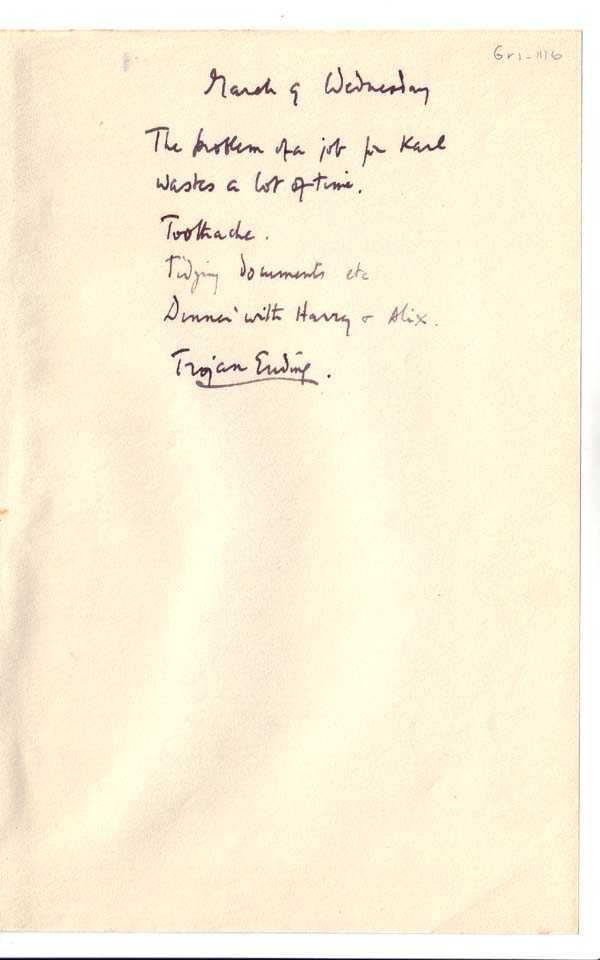 March 9 Wednesday
The problem of a job for Karl
wastes a lot of time.
Toothache.
Tidying documents etc
Dinner with Harry & Alix.
Trojan Ending.